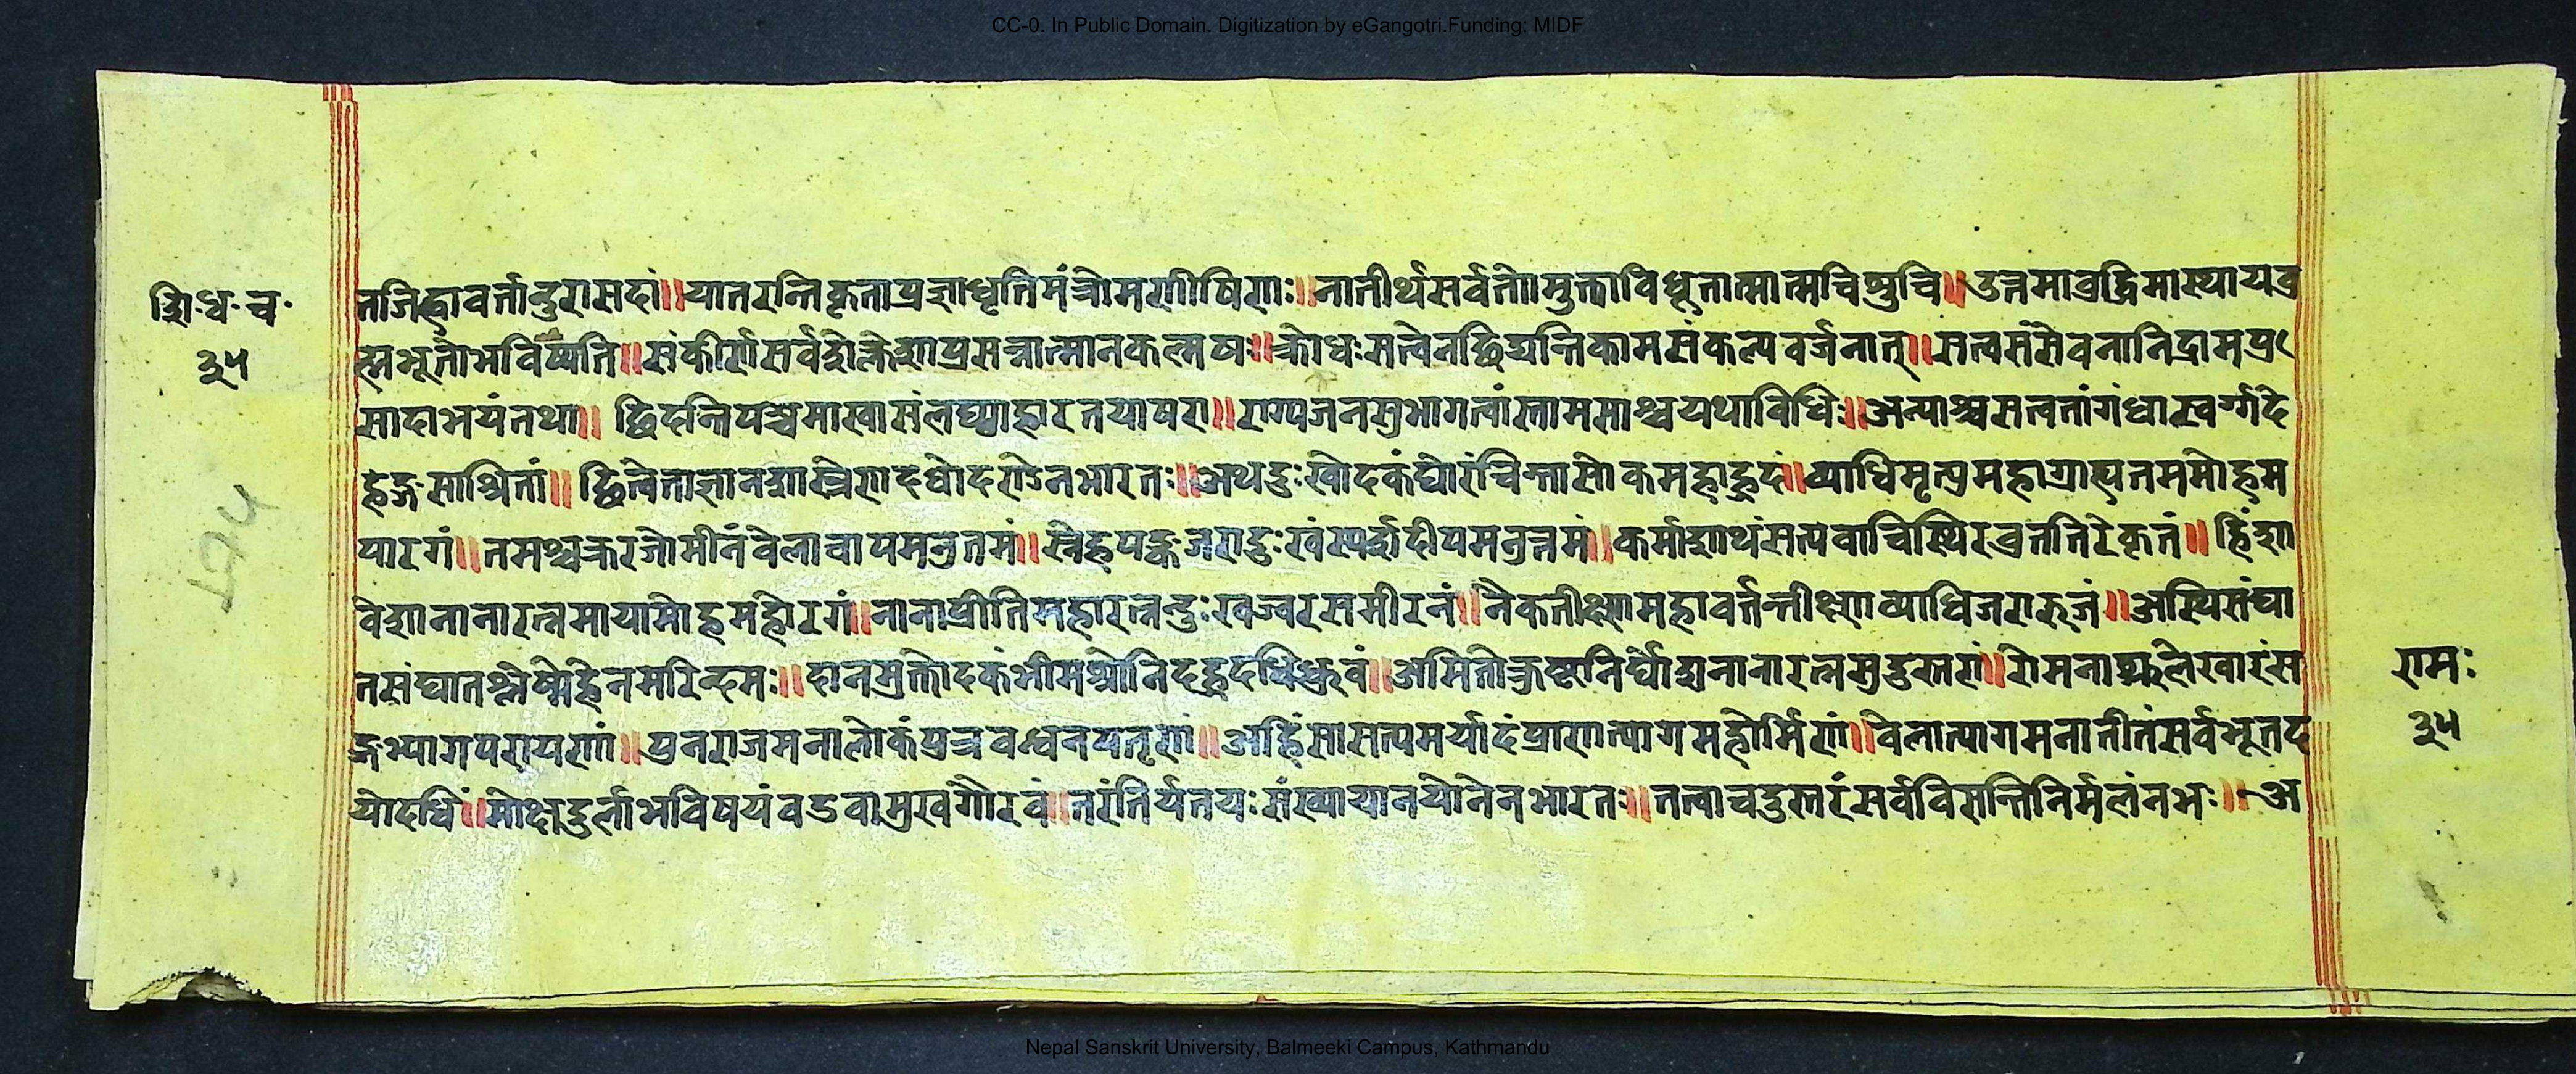 CC-0. In Public Domain. Digitization by eGangotri.Funding: MIDF
शि॰ध॰च॰
३५
तजिह्वावर्तान्दुरासदां॥यातरन्तिकृताप्रज्ञाधृतिमंत्रोमणीषिणः॥नातीर्थसर्वतोमुक्त्वाविधूतात्मात्मचिश्रुचि॥उत्तमाब्रद्धिमास्थायब्र
ह्मभूतोभविष्यति॥संकीर्णसर्वशेक्लेशाप्रसन्नात्मानकल्मषः॥क्रोधःसत्वेनछिद्यन्तिकामसंकल्पवर्जनात्॥सत्वसंसेवनानिद्रामप्र
सादाभयंतथा॥ छिदन्तिपञ्चमाखासंलघ्याहारतयाषरा॥राग्यजनस्रभागत्वांस्तामसाश्चयथाविधिः॥अन्याश्चसत्वतांगंधास्वर्ग्गदे
हेङ्गसाश्रितां॥ छित्वेताज्ञानशास्त्रेणदधोदराडेनभारतः॥अथदुःखोदकंघोरंचिन्तासोकमहाह्रदां॥व्याधिमृत्युमहाग्राह्यतममोहम
पारगं॥तमश्चक्ररजोमीनंवेलावापमनुतमं॥स्नेहपङ्कजरादुःखंस्पर्शदीपमनुत्तमं॥कर्माशाथंसत्यवाचिस्थिरव्रततिरेकृतं॥ हिंशा
वेशानानारत्नमायामोहमहोरगं॥नानाप्रीतिमहारत्नन्दुःखज्वरसमीरनं॥नैकतीक्ष्णामहावर्तन्तीक्ष्णाव्याधिजरारुजं॥अस्थिसंघा
तसंघातश्लेष्मेहेनमरिन्दमः॥दानमुक्तोदकंभीमश्रोनिदह्रदधिध्रुवं॥अमितोत्क्रष्टानिर्घोशनानारत्नसुदुस्तरां॥रोमनाश्रुलेखारंस
ङ्गभ्यागपरायणां॥पुनराजमनालोकंपुत्रवन्धनयतृणं॥अहिंसासत्यमर्यादंप्राणात्यागमहोर्मिणं॥वेलात्यागमनातीतंसर्वभूतद
योदधिं॥मोक्षदुर्लाभविषयंवडवामुखगौरवं॥तरंतिर्यतयःसंख्यायानयोनेनभारतः॥तत्वाचदुस्तरंसर्वविसन्तिनिर्मलंनभः॥ अ
रामः
३५
Nepal Sanskrit University, Balmeeki Campus, Kathmandu